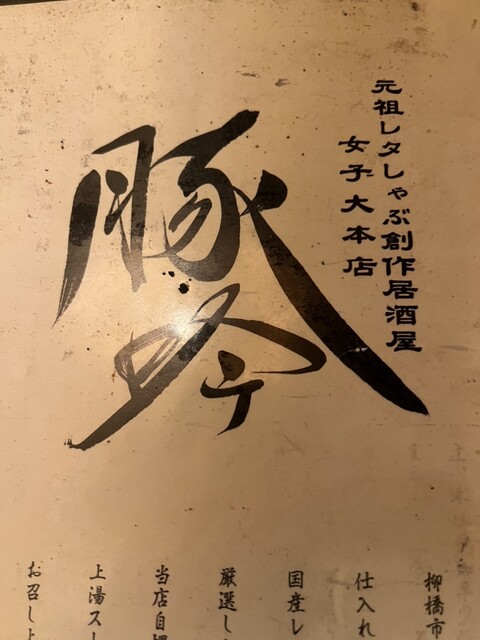 元祖レタしゃぶ創作居酒屋
女子大本店
豚吟
柳橋市
仕入れ
国産レ
厳選し
当店自
上湯ス
お召し上